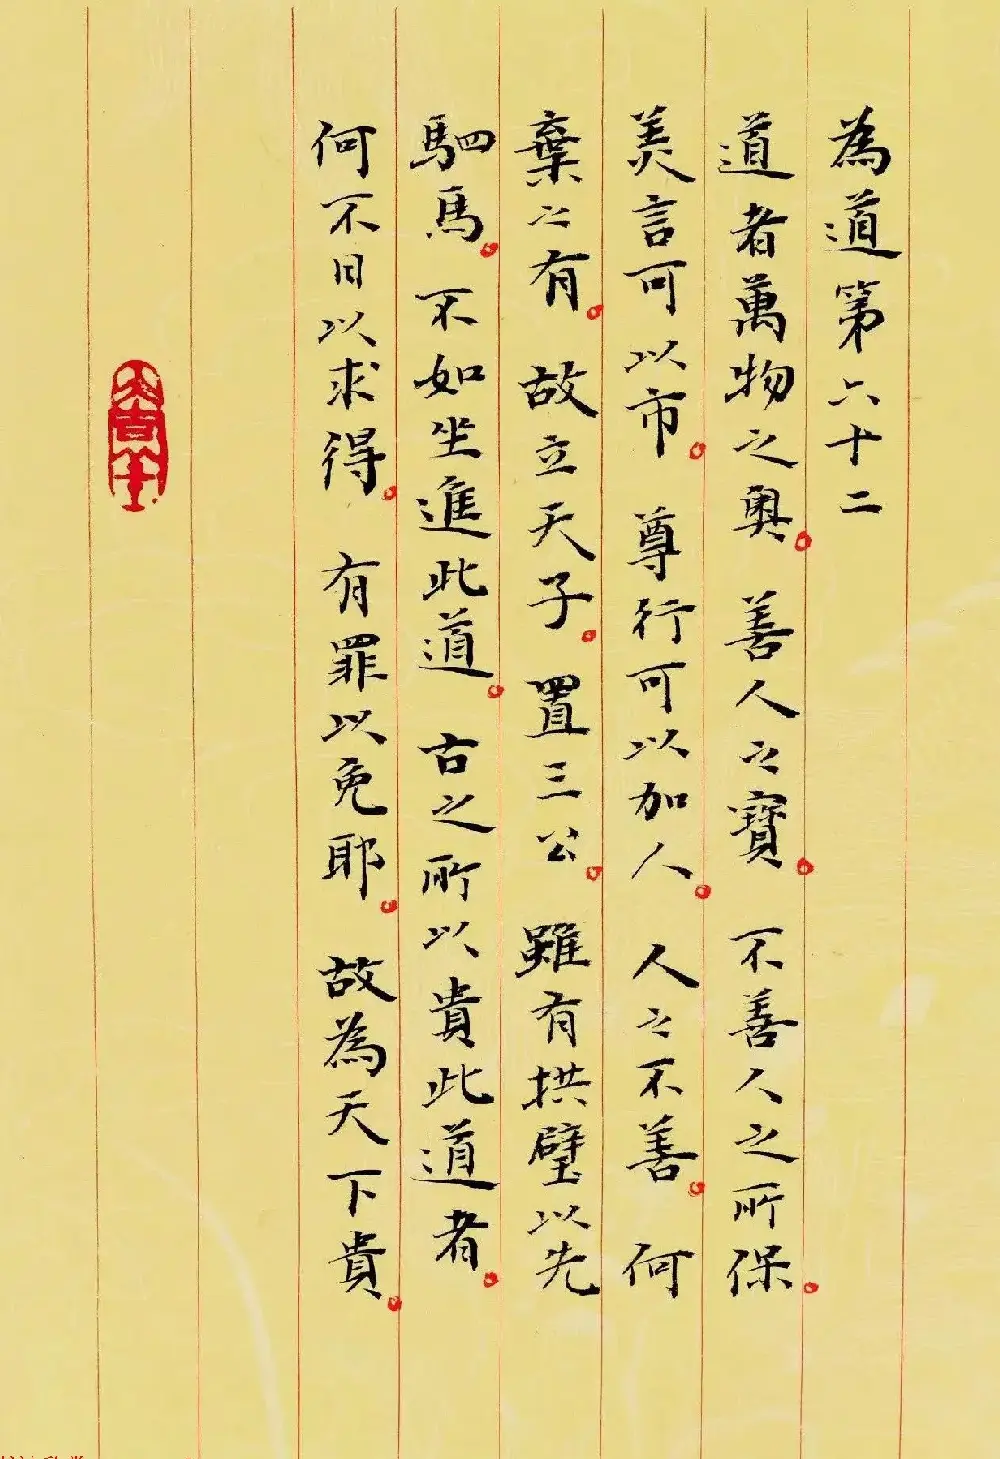 為道第六十二
道者萬物之奧。善人之寶。不善人之所保。
美言可以市。尊行可以加人。人之不善。何
棄之有。故立天子。置三公。雖有拱璧以先
駟馬。不如坐進此道。古之所以貴此道者。
何不日以求得。有罪以免耶。故為天下貴。